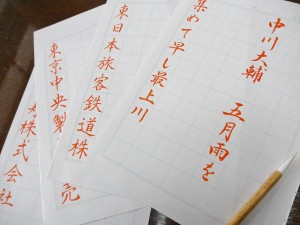 中川大輔 五月雨を
集めて早し最上川
東日本旅客鉄道株
東京中央製
売
株式会社